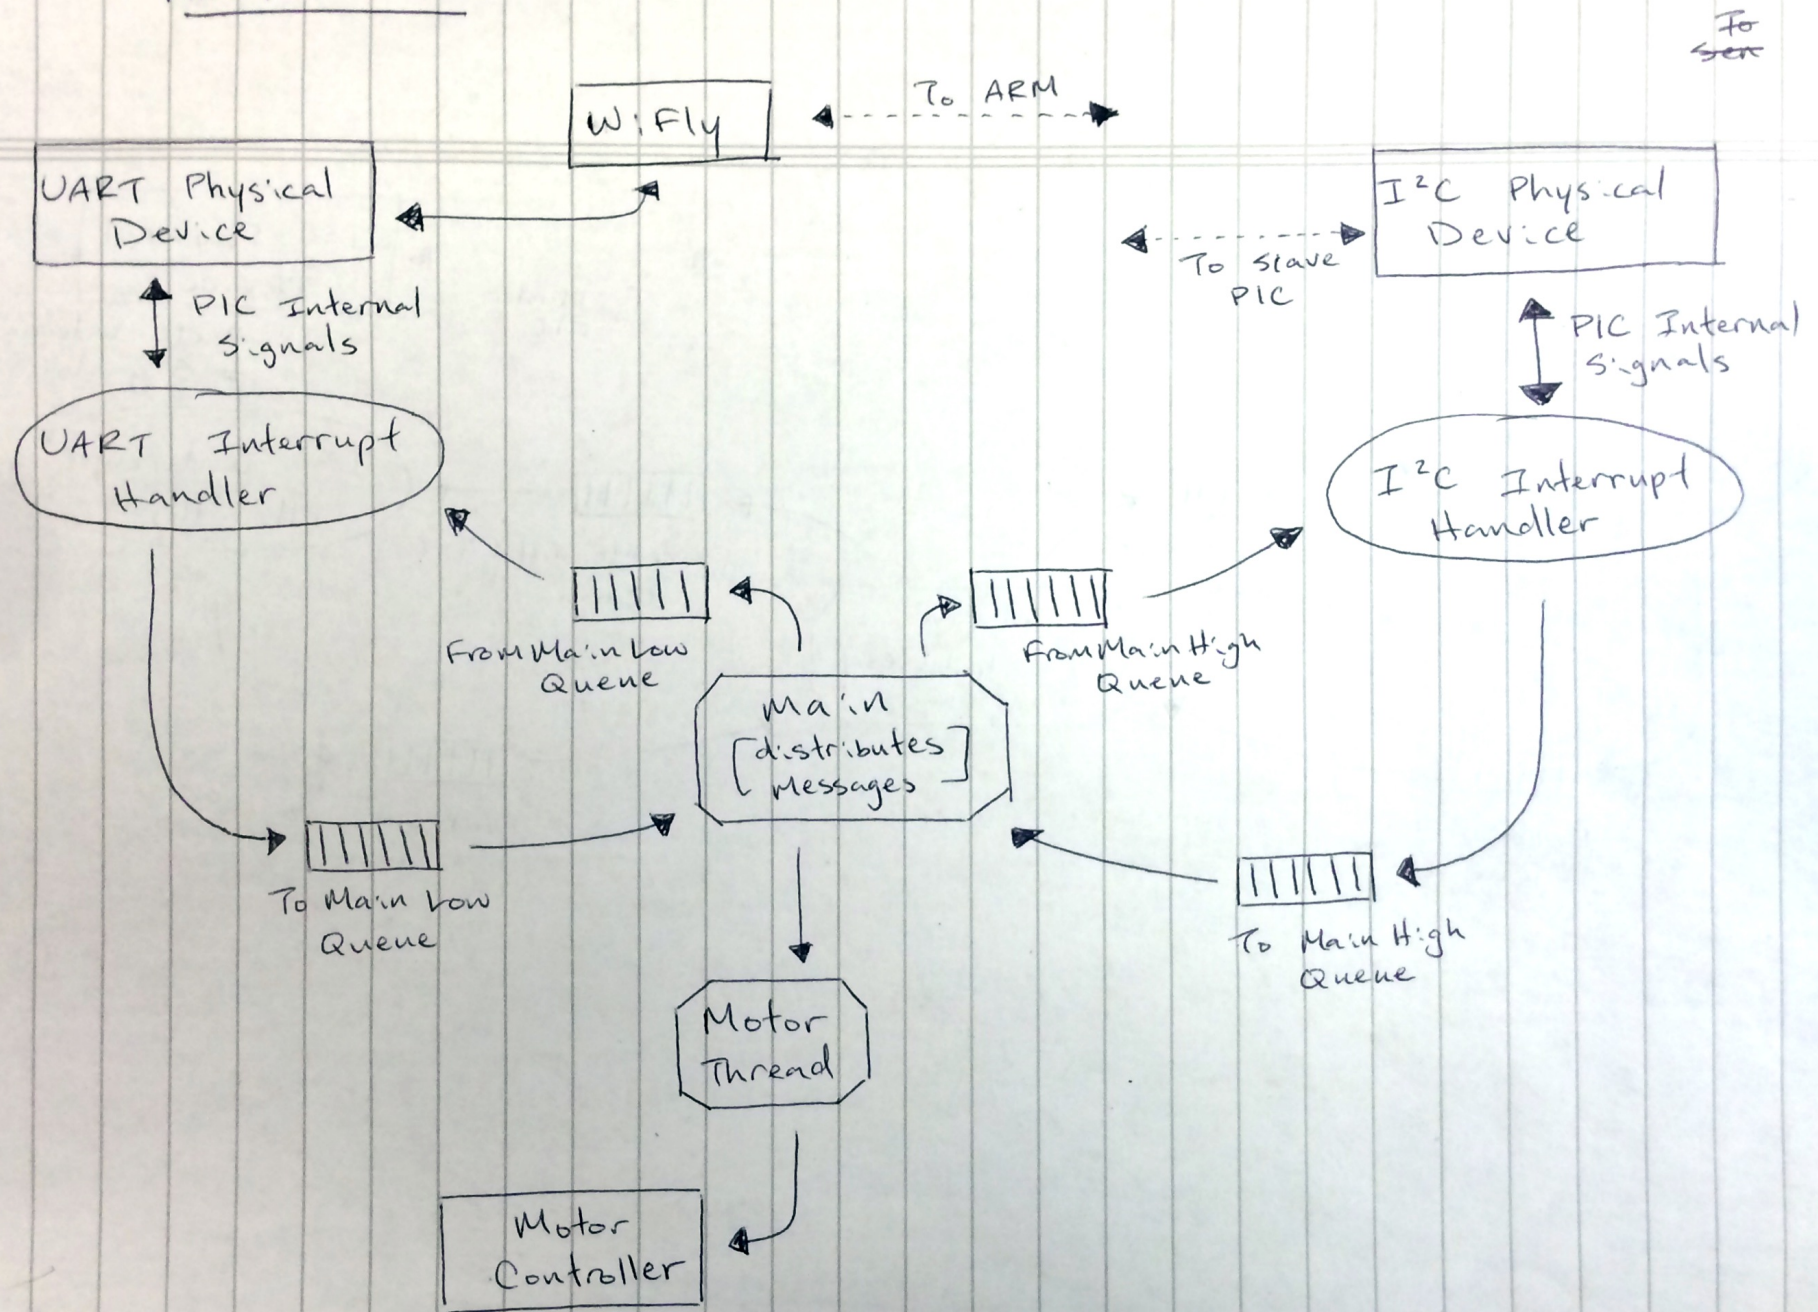 To
Sen
WiFly
To ARM
UART Physical
Device
I²C Physical
Device
To Slave
PIC
PIC Internal
Signals
PIC Internal
Signals
UART Interrupt
Handler
I²C Interrupt
Handler
FromMain Low
Queue
FromMain High
Queue
Main
[distributes
messages]
To Main Low
Queue
To Main High
Queue
Motor
Thread
Motor
Controller